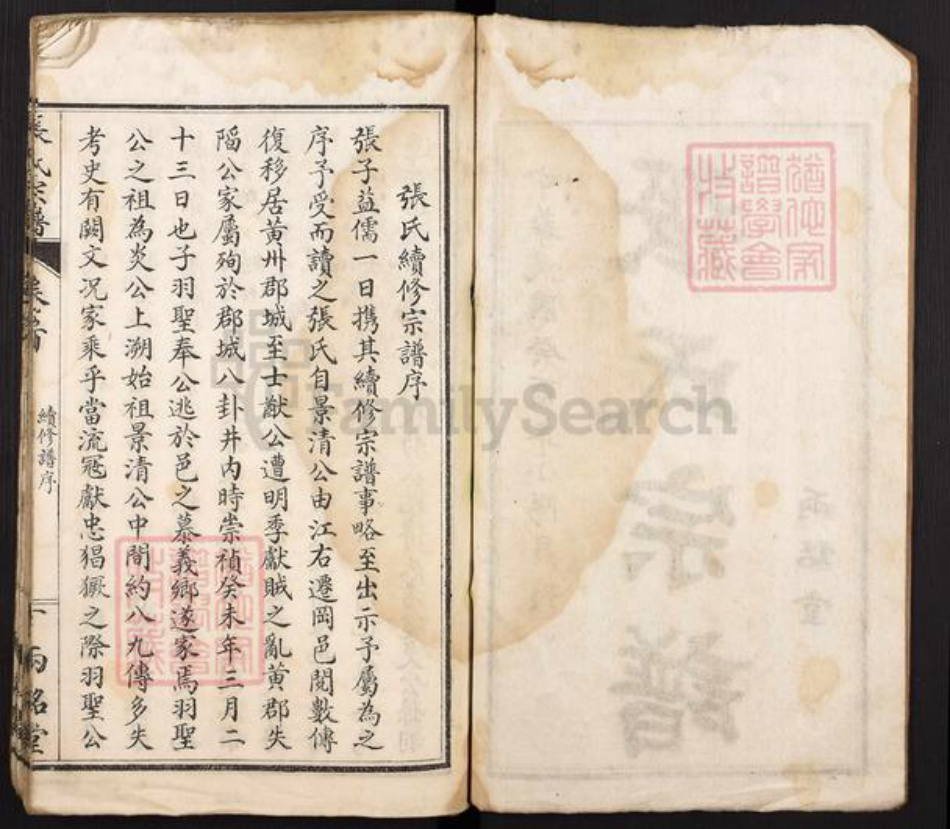 張氏續修宗譜序
張子益儒一日攜其續修宗譜事略至出示予屬為之
序予受而讀之張氏自景清公由江右遷岡邑閱數傳
復移居黃州郡城至士猷公遭明季獻賊之亂黃郡失
陷公家屬殉於郡城八卦井內時崇禎癸未年三月二
十三日也子羽聖奉公逃於邑之慕義鄉遂家焉羽聖
公之祖為炎公上溯始祖景清公中間約八九傳多失
考史有闕文况家乘乎當流冦獻忠猖獗之際羽聖公
張氏宗譜
續修譜序
一
兩銘堂
FamilySearch
譜學會